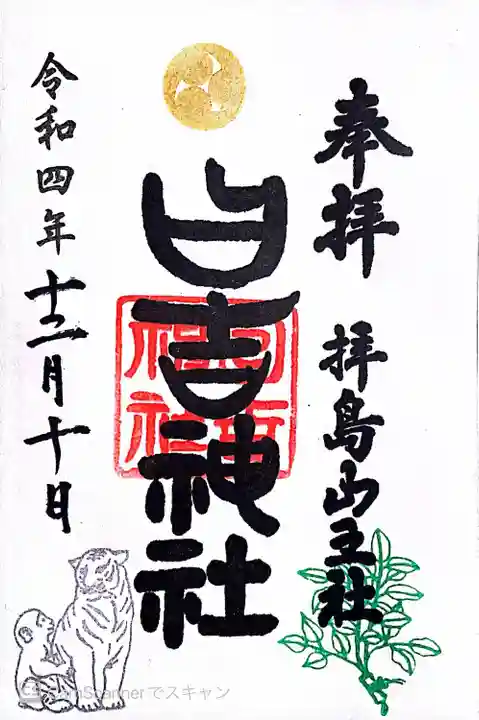 奉拝
拝島山王社
日吉神社
令和四年十二月十日
CS CamScannerでスキャン